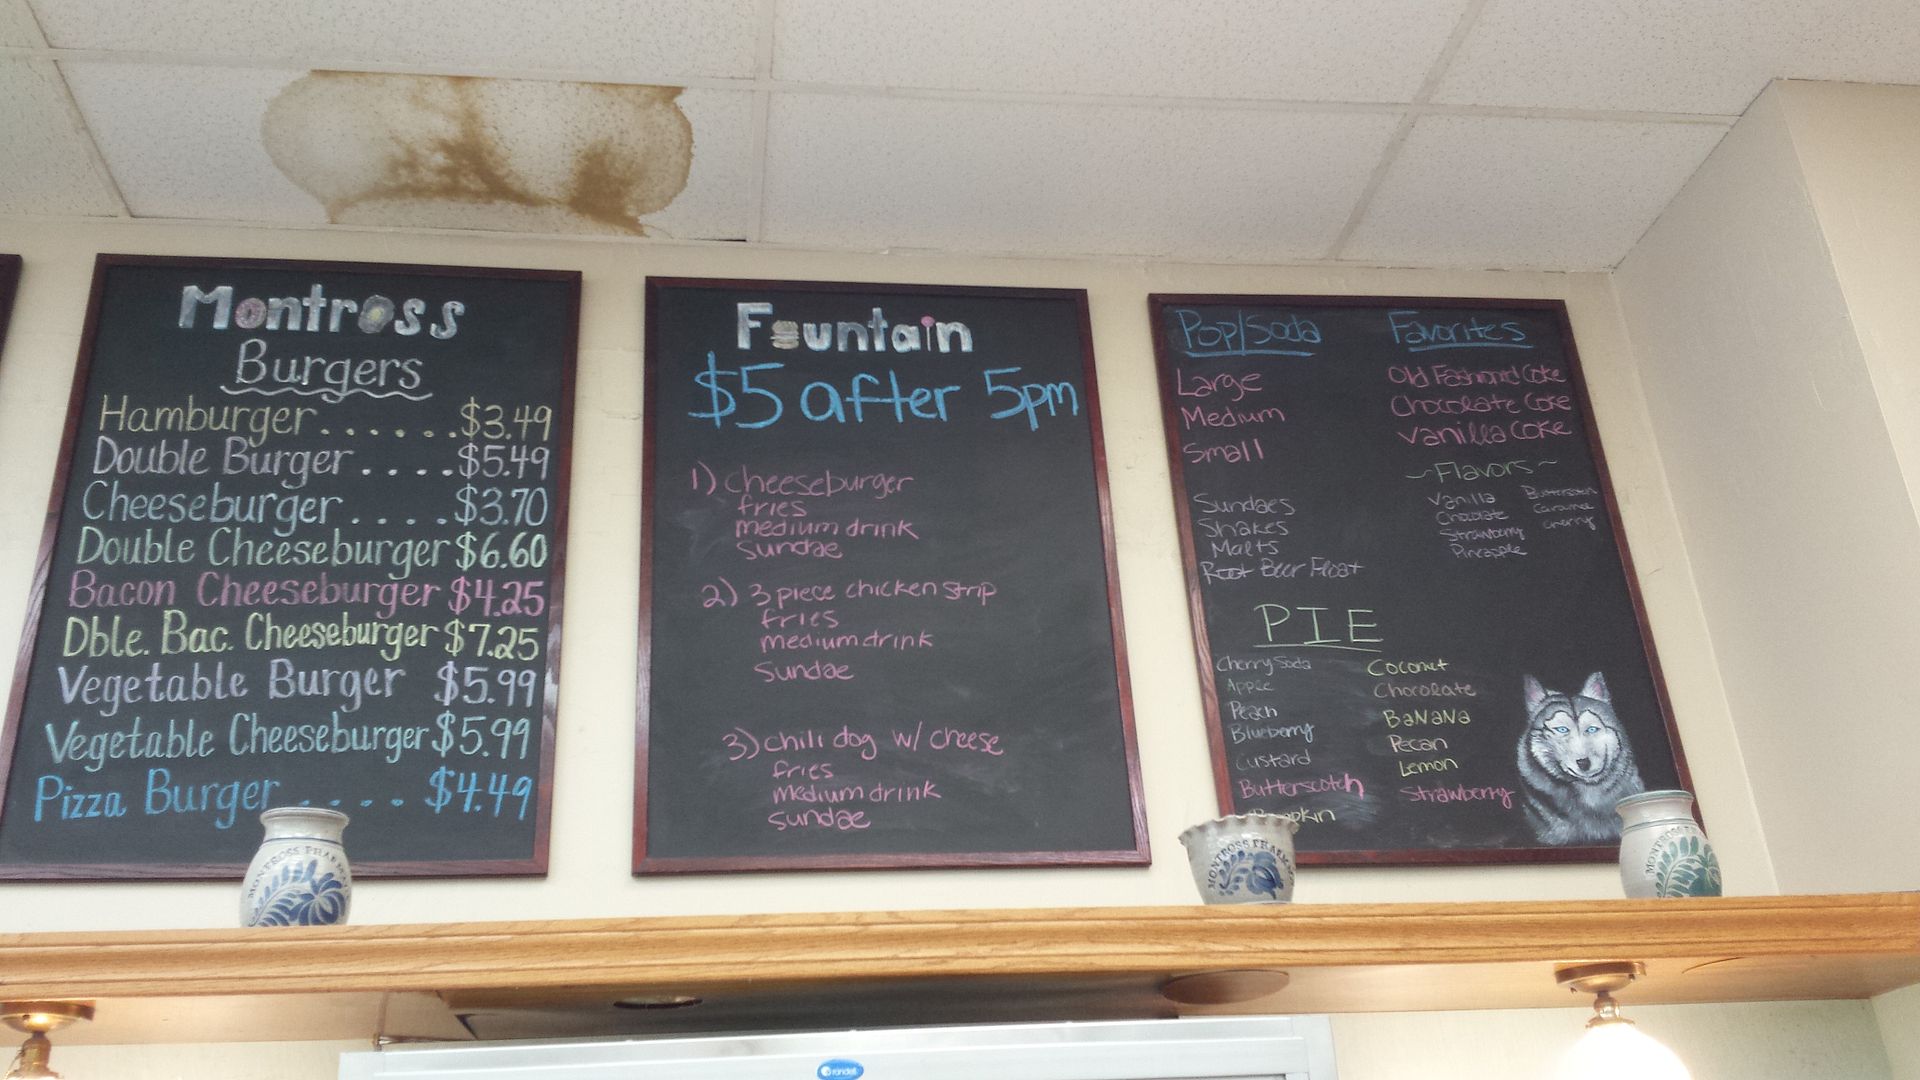 Montross
Burgers
Hamburger......$3.49
Double Burger....$5.49
Cheeseburger....$3.70
Double Cheeseburger $6.60
Bacon Cheeseburger $4.25
Dble. Bac. Cheeseburger $7.25
Vegetable Burger $5.99
Vegetable Cheeseburger $5.99
Pizza Burger....$4.49
Fountain
$5 after 5pm
1) Cheeseburger
fries
medium drink
Sundae
2) 3 piece chicken strip
fries
medium drink
Sundae
3) chili dog w/ cheese
fries
medium drink
sundae
Pop/Soda
Large
Medium
Small
Sundaes
Shakes
Malts
Root Beer Float
Favorites
Old Fashioned Coke
Chocolate Coke
Vanilla Coke
~Flavors~
Vanilla
Chocolate
Strawberry
Pineapple
Butterscotch
Caramel
Cherry
PIE
Cherry Soda
Apple
Peach
Blueberry
Custard
Butterscotch
Coconut
Chocolate
BaNaNa
Pecan
Lemon
Strawberry
MONTROSS PHARMA
MONTROSS PHARMA
MONTROSS
randell